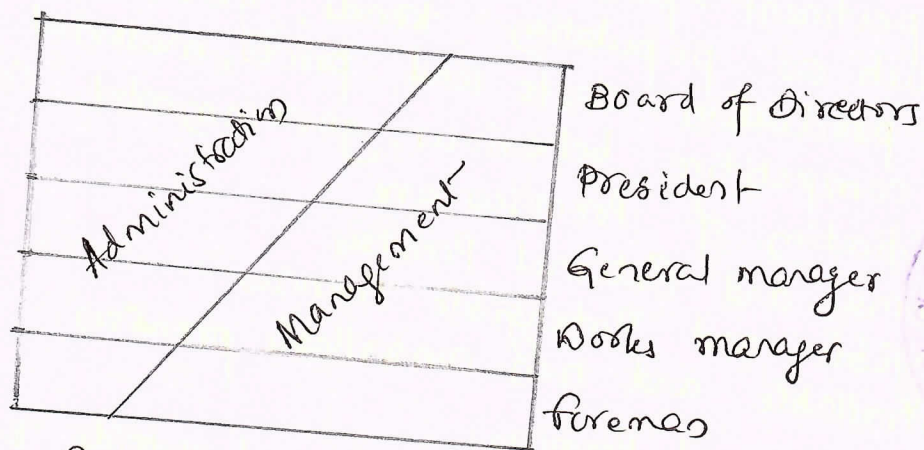 Administration
Management
Board of Directors
President
General manager
Works manager
foreman